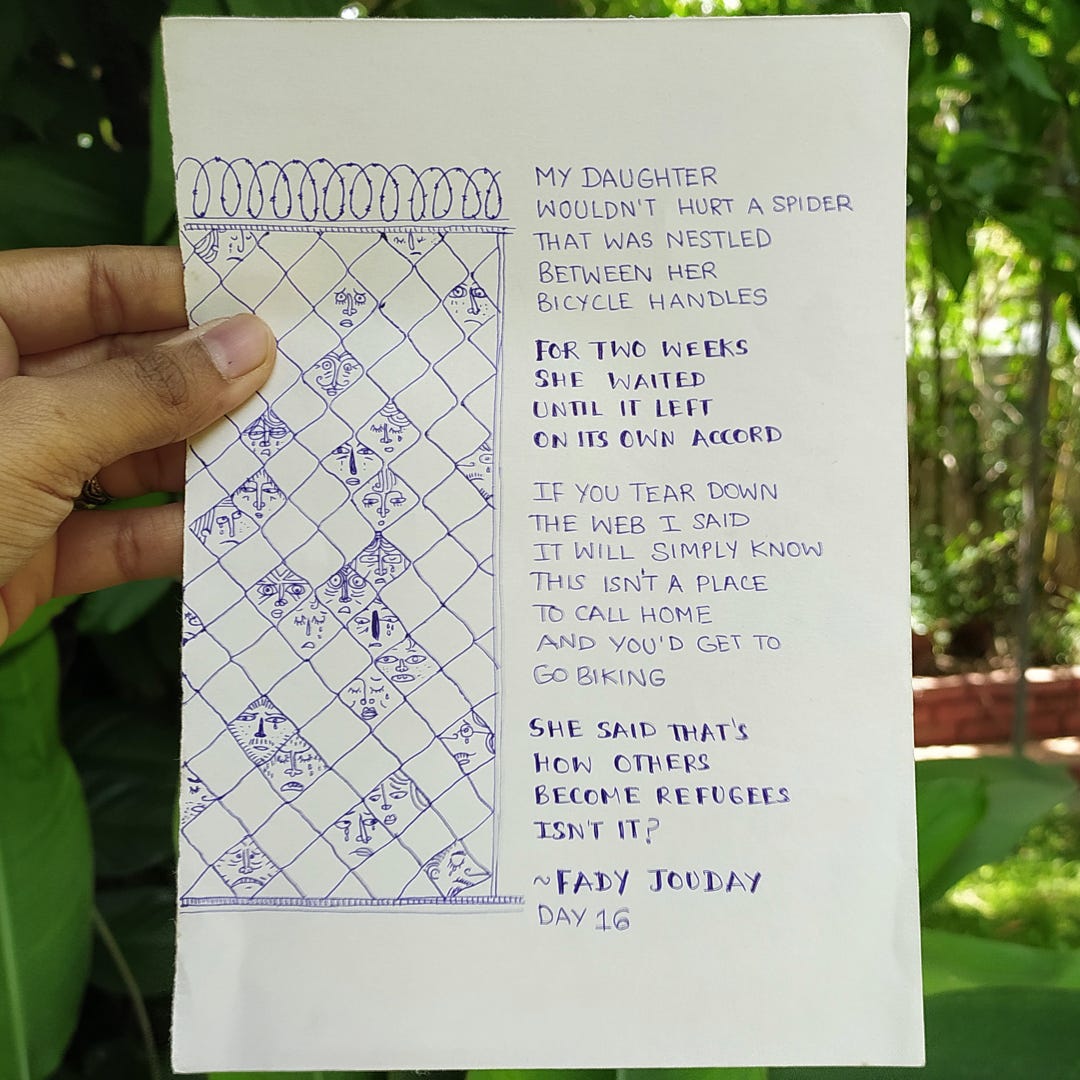 MY DAUGHTER
WOULDN'T HURT A SPIDER
THAT WAS NESTLED
BETWEEN HER
BICYCLE HANDLES
FOR TWO WEEKS
SHE WAITED
UNTIL IT LEFT
ON ITS OWN ACCORD
IF YOU TEAR DOWN
THE WEB I SAID
IT WILL SIMPLY KNOW
THIS ISN'T A PLACE
TO CALL HOME
AND YOU'D GET TO
GO BIKING
SHE SAID THAT'S
HOW OTHERS
BECOME REFUGEES
ISN'T IT?
~FADY JOUDAY
DAY 16